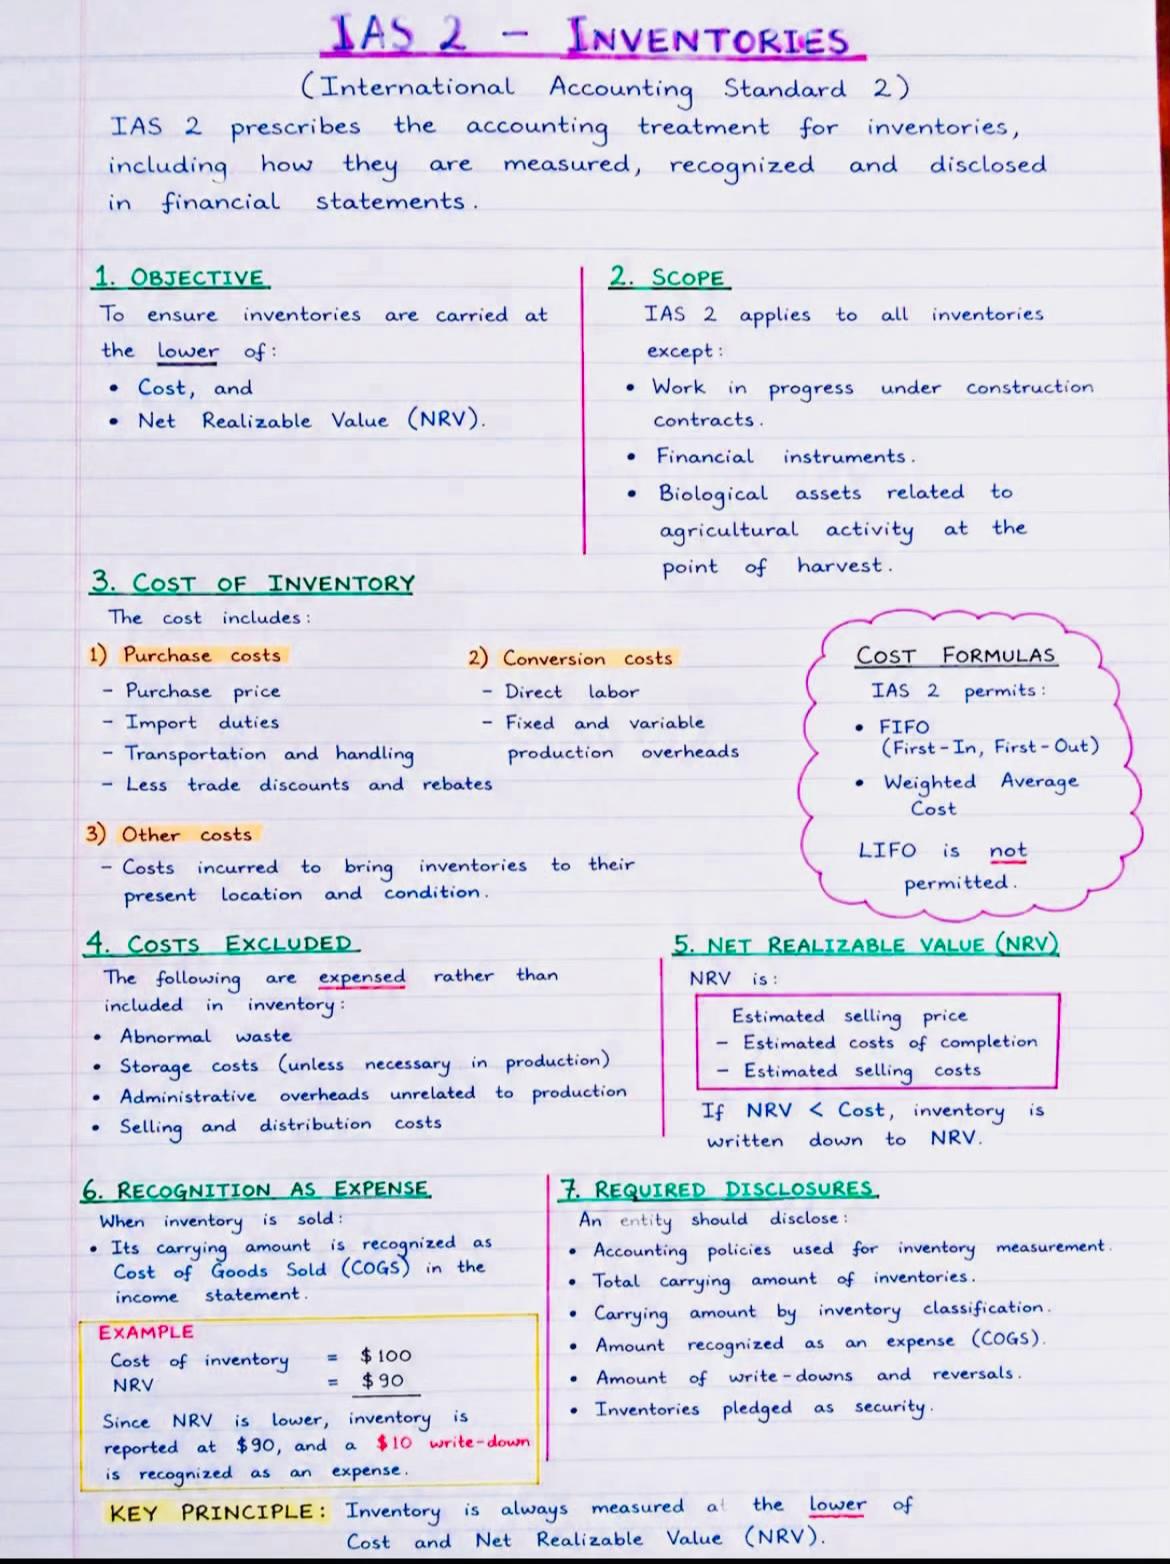 IAS 2 - INVENTORIES
(International Accounting Standard 2)
IAS 2 prescribes the accounting treatment for inventories,
including how they are measured, recognized and disclosed
in financial statements.
1. OBJECTIVE
To ensure inventories are carried at
the lower of:
• Cost, and
• Net Realizable Value (NRV).
2. SCOPE
IAS 2 applies to all inventories
except:
• Work in progress under construction
contracts.
• Financial instruments.
• Biological assets related to
agricultural activity at the
point of harvest.
3. COST OF INVENTORY
The cost includes:
1) Purchase costs
- Purchase price
- Import duties
- Transportation and handling
- Less trade discounts and rebates
2) Conversion costs
- Direct labor
- Fixed and variable
production overheads
3) Other costs
- Costs incurred to bring inventories to their
present location and condition.
COST FORMULAS
IAS 2 permits:
• FIFO
(First-In, First-Out)
• Weighted Average
Cost
LIFO is not
permitted.
4. COSTS EXCLUDED
The following are expensed rather than
included in inventory:
• Abnormal waste
• Storage costs (unless necessary in production)
• Administrative overheads unrelated to production
• Selling and distribution costs
5. NET REALIZABLE VALUE (NRV)
NRV is:
Estimated selling price
- Estimated costs of completion
- Estimated selling costs
If NRV < Cost, inventory is
written down to NRV.
6. RECOGNITION AS EXPENSE
When inventory is sold:
• Its carrying amount is recognized as
Cost of Goods Sold (COGS) in the
income statement.
EXAMPLE
Cost of inventory = $100
NRV = $90
Since NRV is lower, inventory is
reported at $90, and a $10 write-down
is recognized as an expense.
7. REQUIRED DISCLOSURES
An entity should disclose:
• Accounting policies used for inventory measurement.
• Total carrying amount of inventories.
• Carrying amount by inventory classification.
• Amount recognized as an expense (COGS).
• Amount of write-downs and reversals.
• Inventories pledged as security.
KEY PRINCIPLE: Inventory is always measured at the lower of
Cost and Net Realizable Value (NRV).